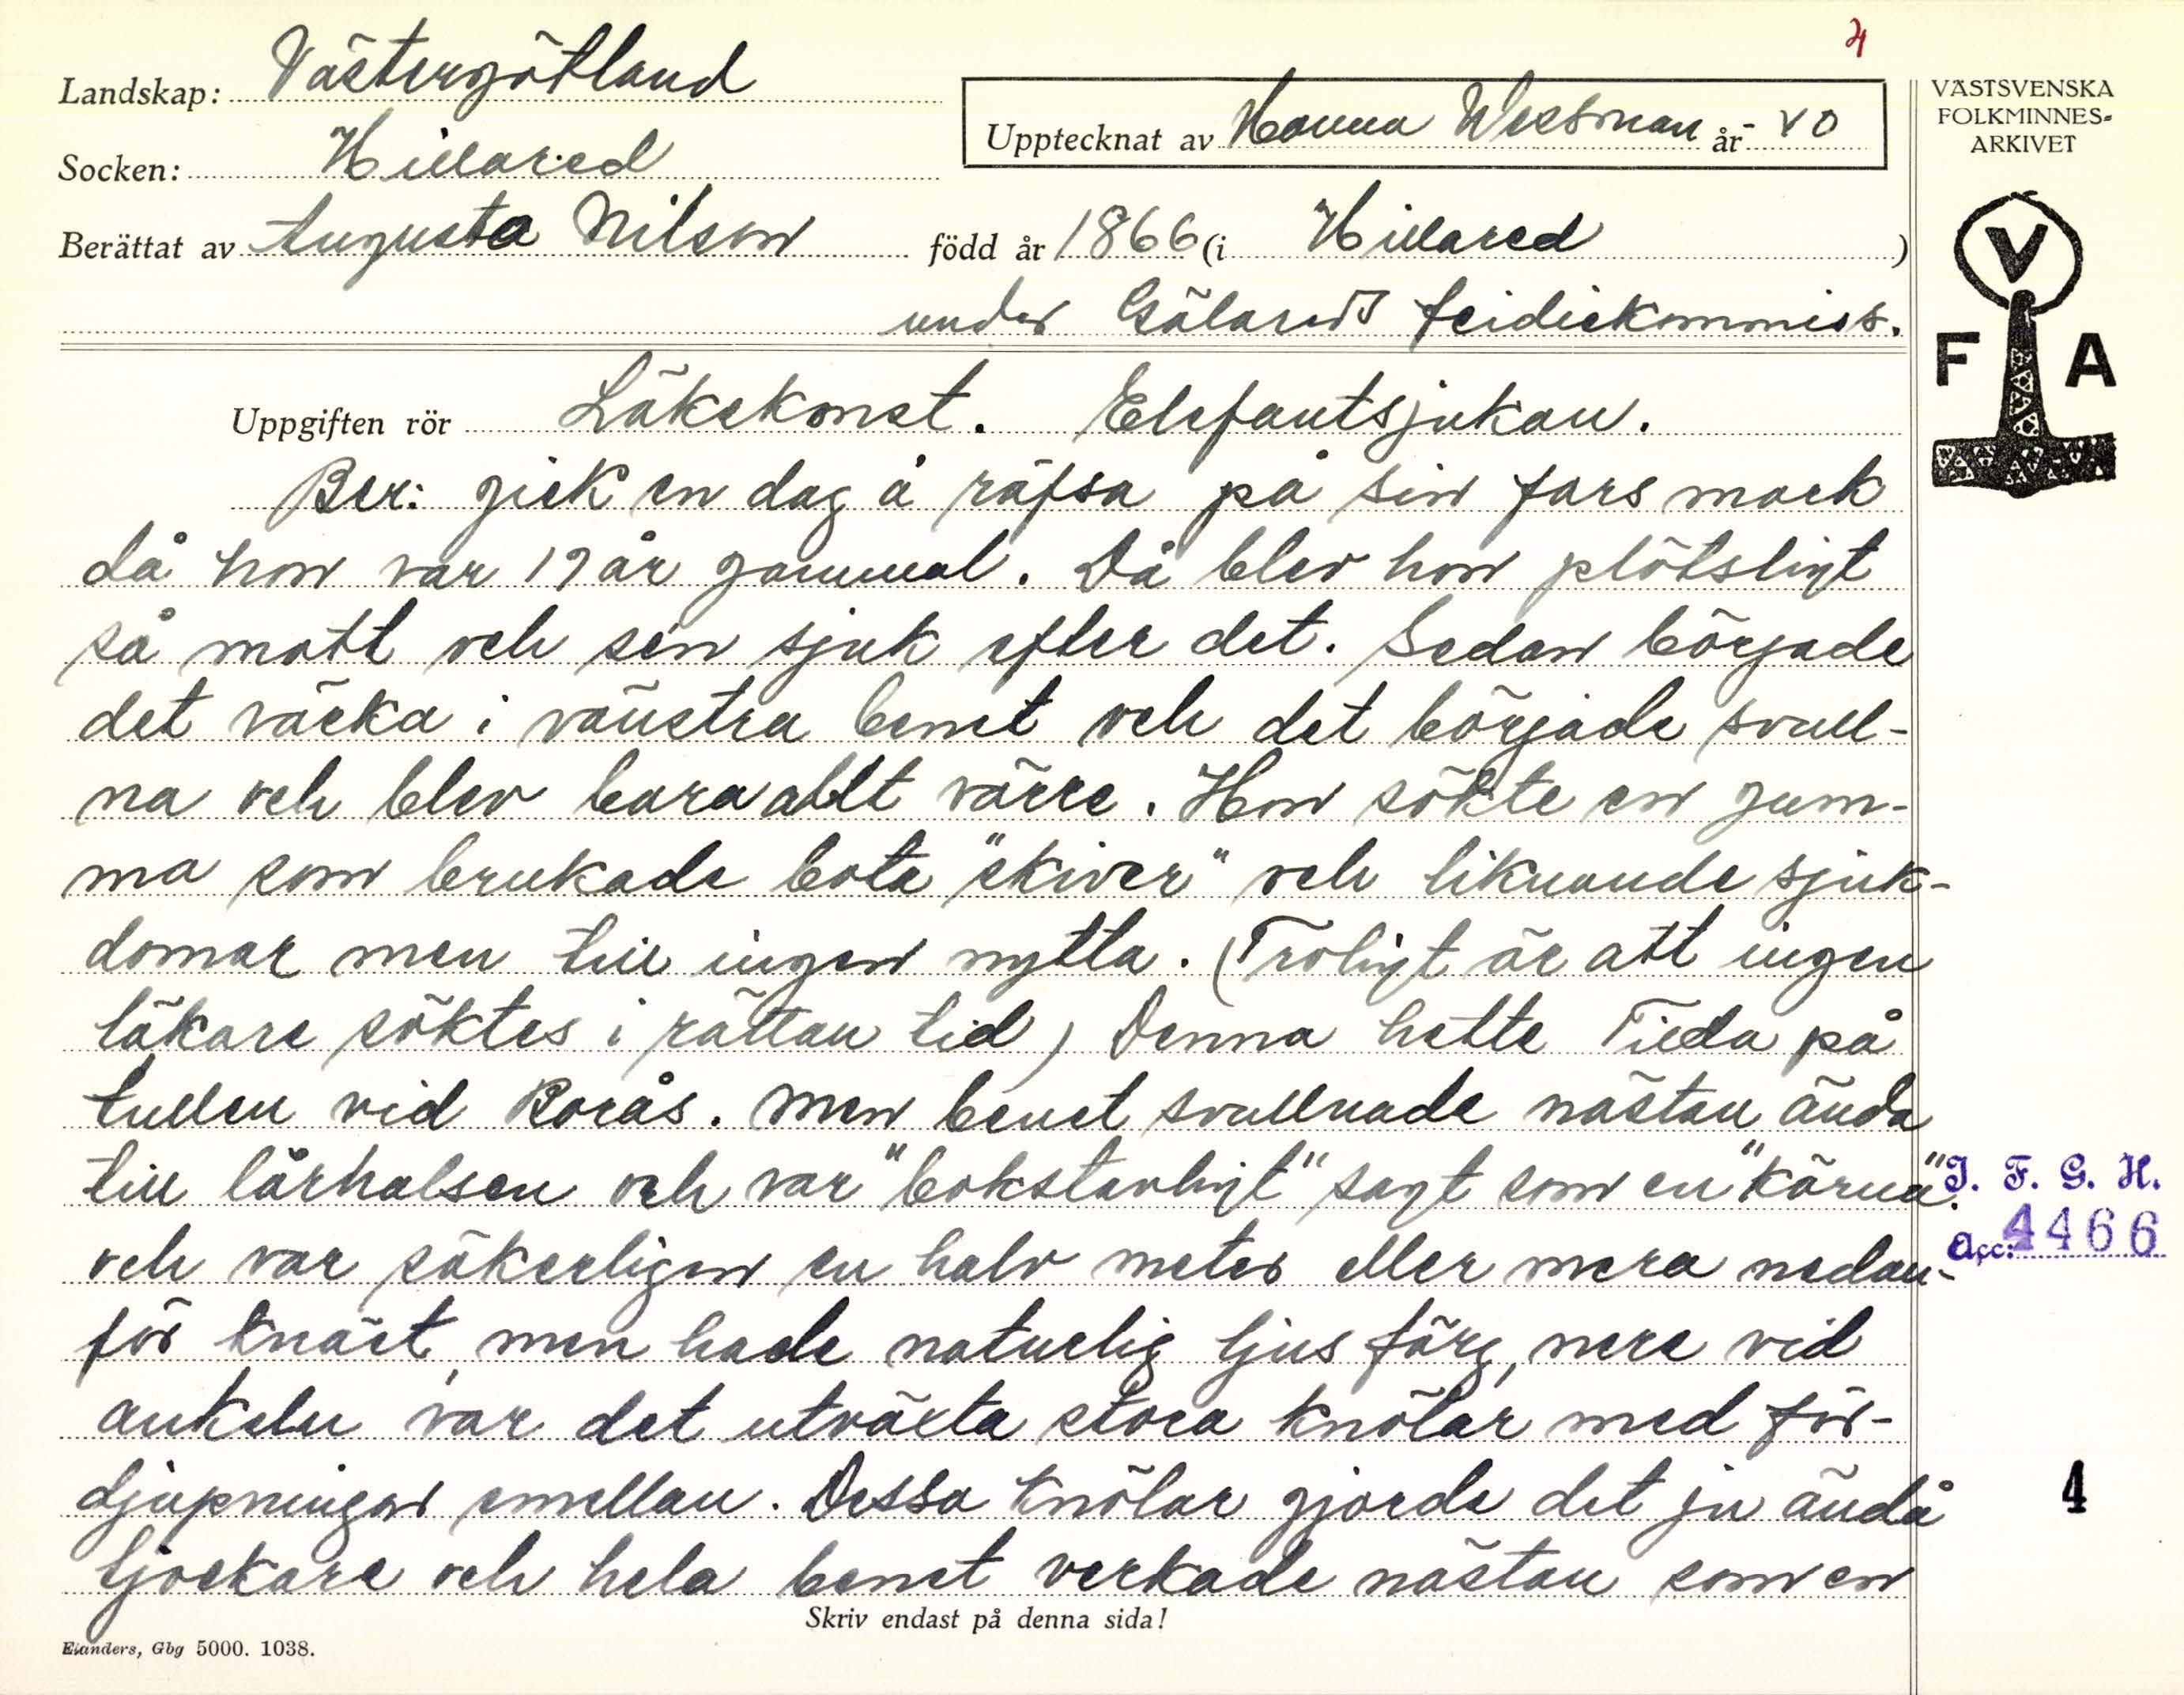 4
Landskap: Västergötland
Socken: Hillared
Upptecknat av Hanna Wessman år -40
Berättat av Augusta Nilson född år 1866 (i Hillared)
under Gölareds feidiekommiss.
VÄSTSVENSKA
FOLKMINNES-
ARKIVET
V
F A
Uppgiften rör Läkekonst. Elefantsjukan.
Ber: gick en dag å räfsa på sin fars mark
då hon var 19 år gammal. Då blev hon plötsligt
så matt och sen sjuk efter det. Sedan började
det värka i vänstra benet och det började svull-
na och blev bara allt värre. Hon sökte en gum-
ma som brukade bota "skiver" och liknande sjuk-
domar men till ingen nytta. (Troligt är att ingen
läkare söktes i rättan tid) Denna hette Tilda på
tullen vid Borås. Men benet svullnade nästan ända
till lårhalsen och var "bokstavligt" sagt som en "kärna".
och var säkerligen en halv meter eller mera nedan-
för knäet, men hade naturlig ljus färg, nere vid
ankeln var det utväxta stora knölar med för-
djupningar emellan. Dessa knölar gjorde det ju ändå
tjockare och hela benet verkade nästan som en
I. F. G. H.
Acc: 4466
4
Skriv endast på denna sida!
Elanders, Gbg 5000. 1038.